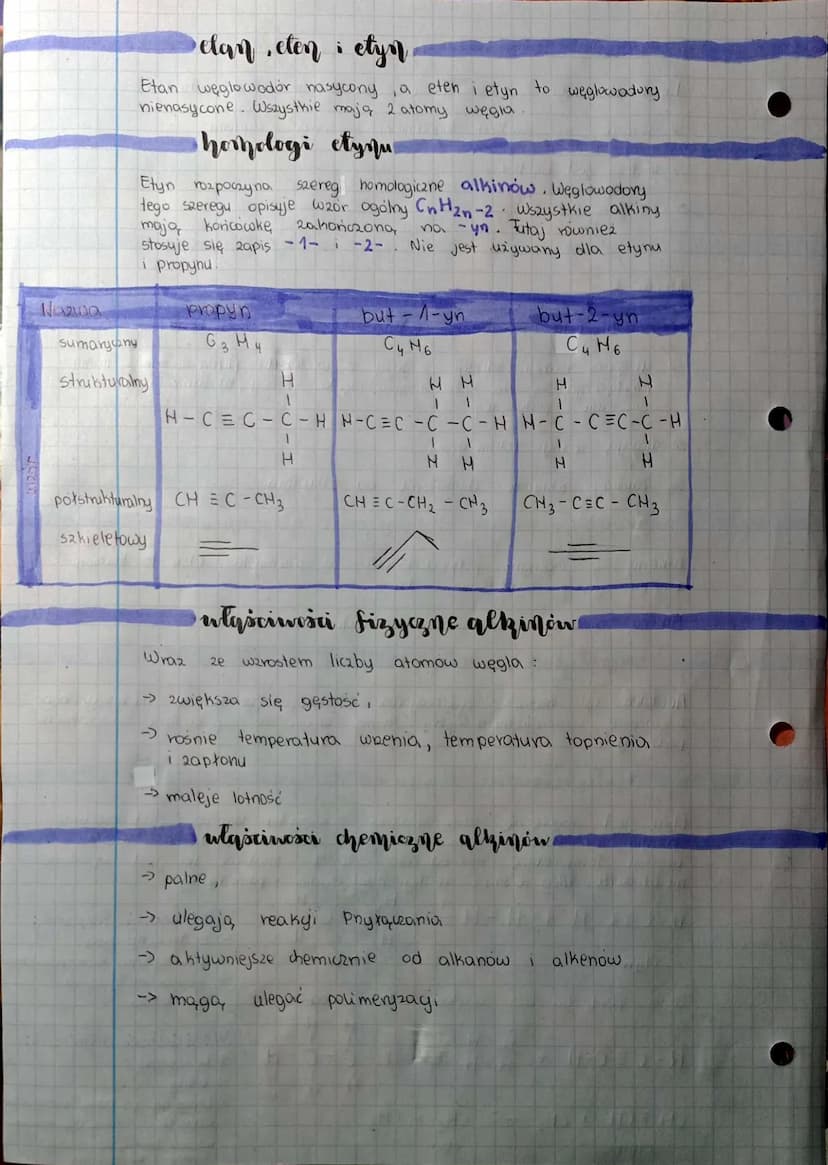 etan, eten i etyn
Etan węglowodór nasycony, a eten i etyn to węglowodory
nienasycone. Wszystkie mają 2 atomy węgla.
homologi etynu
Etyn rozpoczyna szereg homologiczne alkinów. Węglowodory
tego szeregu opisuje wzór ogólny CnH2n-2. Wszystkie alkiny
mają końcówkę zakończoną na -yn. Tutaj również
stosuje się zapis -1- i -2-. Nie jest używany dla etynu
i propynu.
Nazwa propyn but-1-yn but-2-yn
wzór
sumaryczny C3H4 C4H6 C4H6
strukturalny H H H H H
H-C≡C-C-H H-C≡C-C-C-H H-C-C≡C-C-H
H H H H H
półstrukturalny CH≡C-CH3 CH≡C-CH2-CH3 CH3-C≡C-CH3
szkieletowy
właściwości fizyczne alkinów
Wraz ze wzrostem liczby atomow węgla:
-> zwiększa się gęstość,
-> rośnie temperatura wrzenia, temperatura topnienia
i zapłonu
-> maleje lotność
właściwości chemiczne alkinów
-> palne,
-> ulegają reakcji Przyłączania
-> aktywniejsze chemicznie od alkanów i alkenów
-> mogą ulegać polimeryzacji